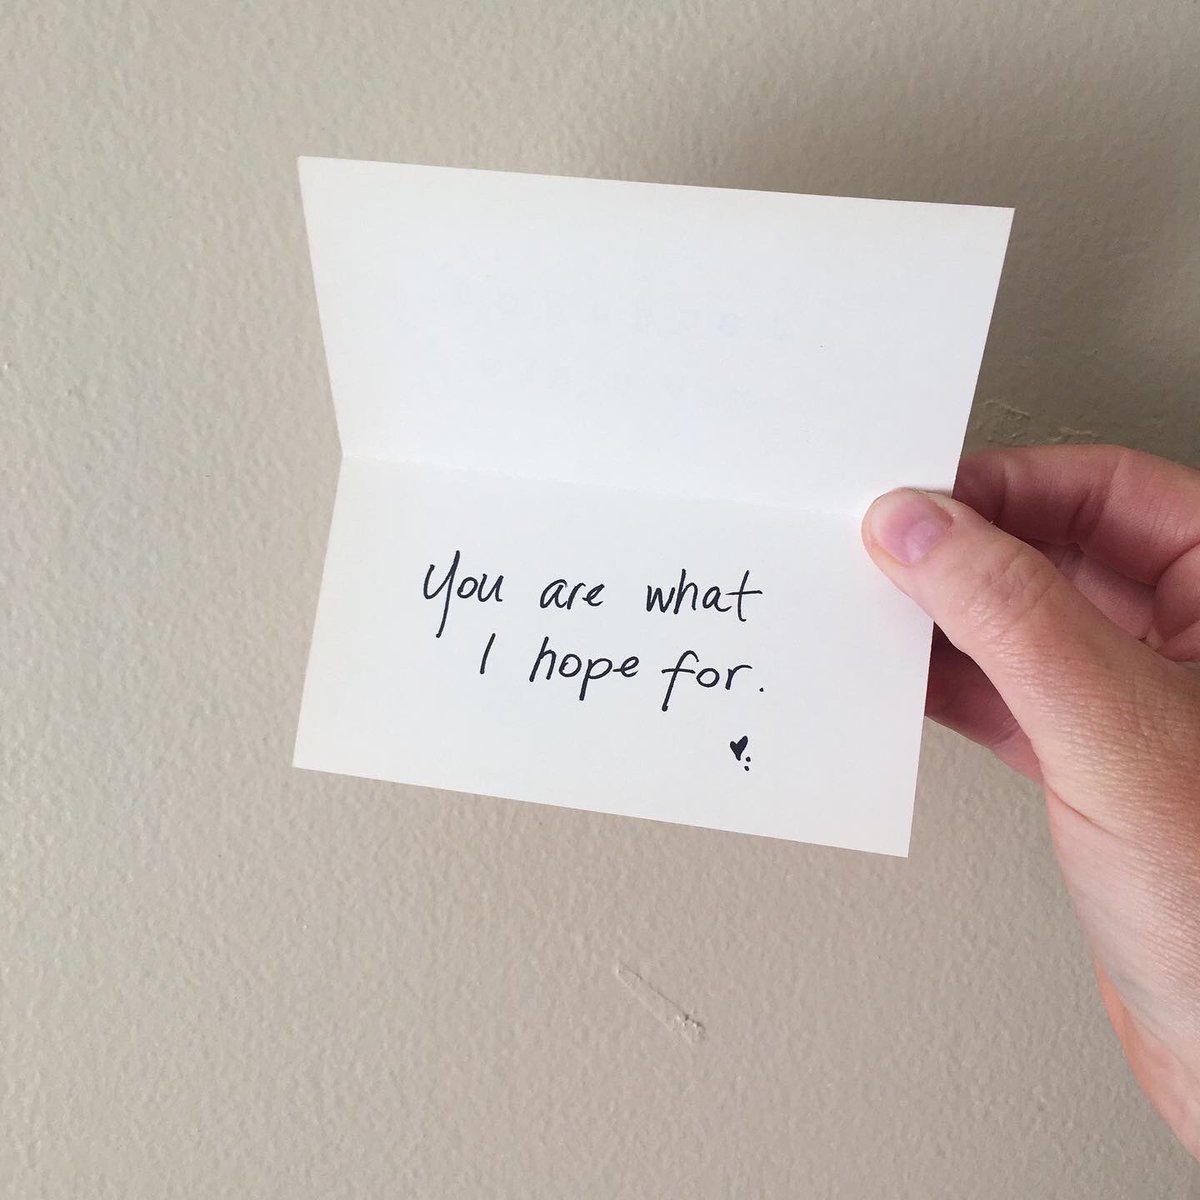 You are what
I hope for.